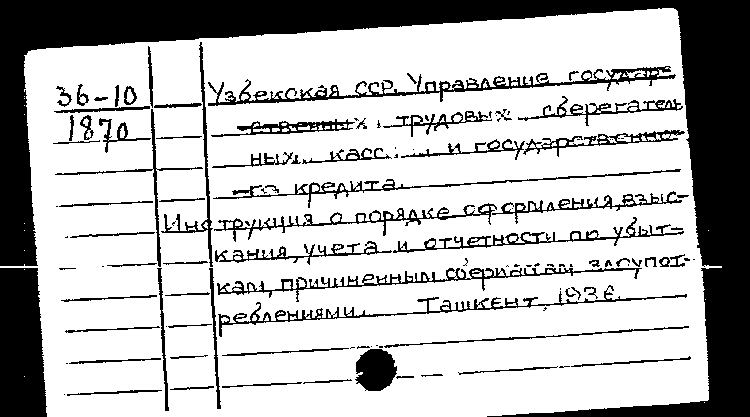 36-10
1870
Узбекская ССР. Управление государ-
ственных трудовых сберегатель
ных касс и государственно-
го кредита.
Инструкция о порядке оформления, взыс-
кания, учета и отчетности по убыт-
кам, причиненным сберкассам злоупот-
реблениями. Ташкент, 1936.